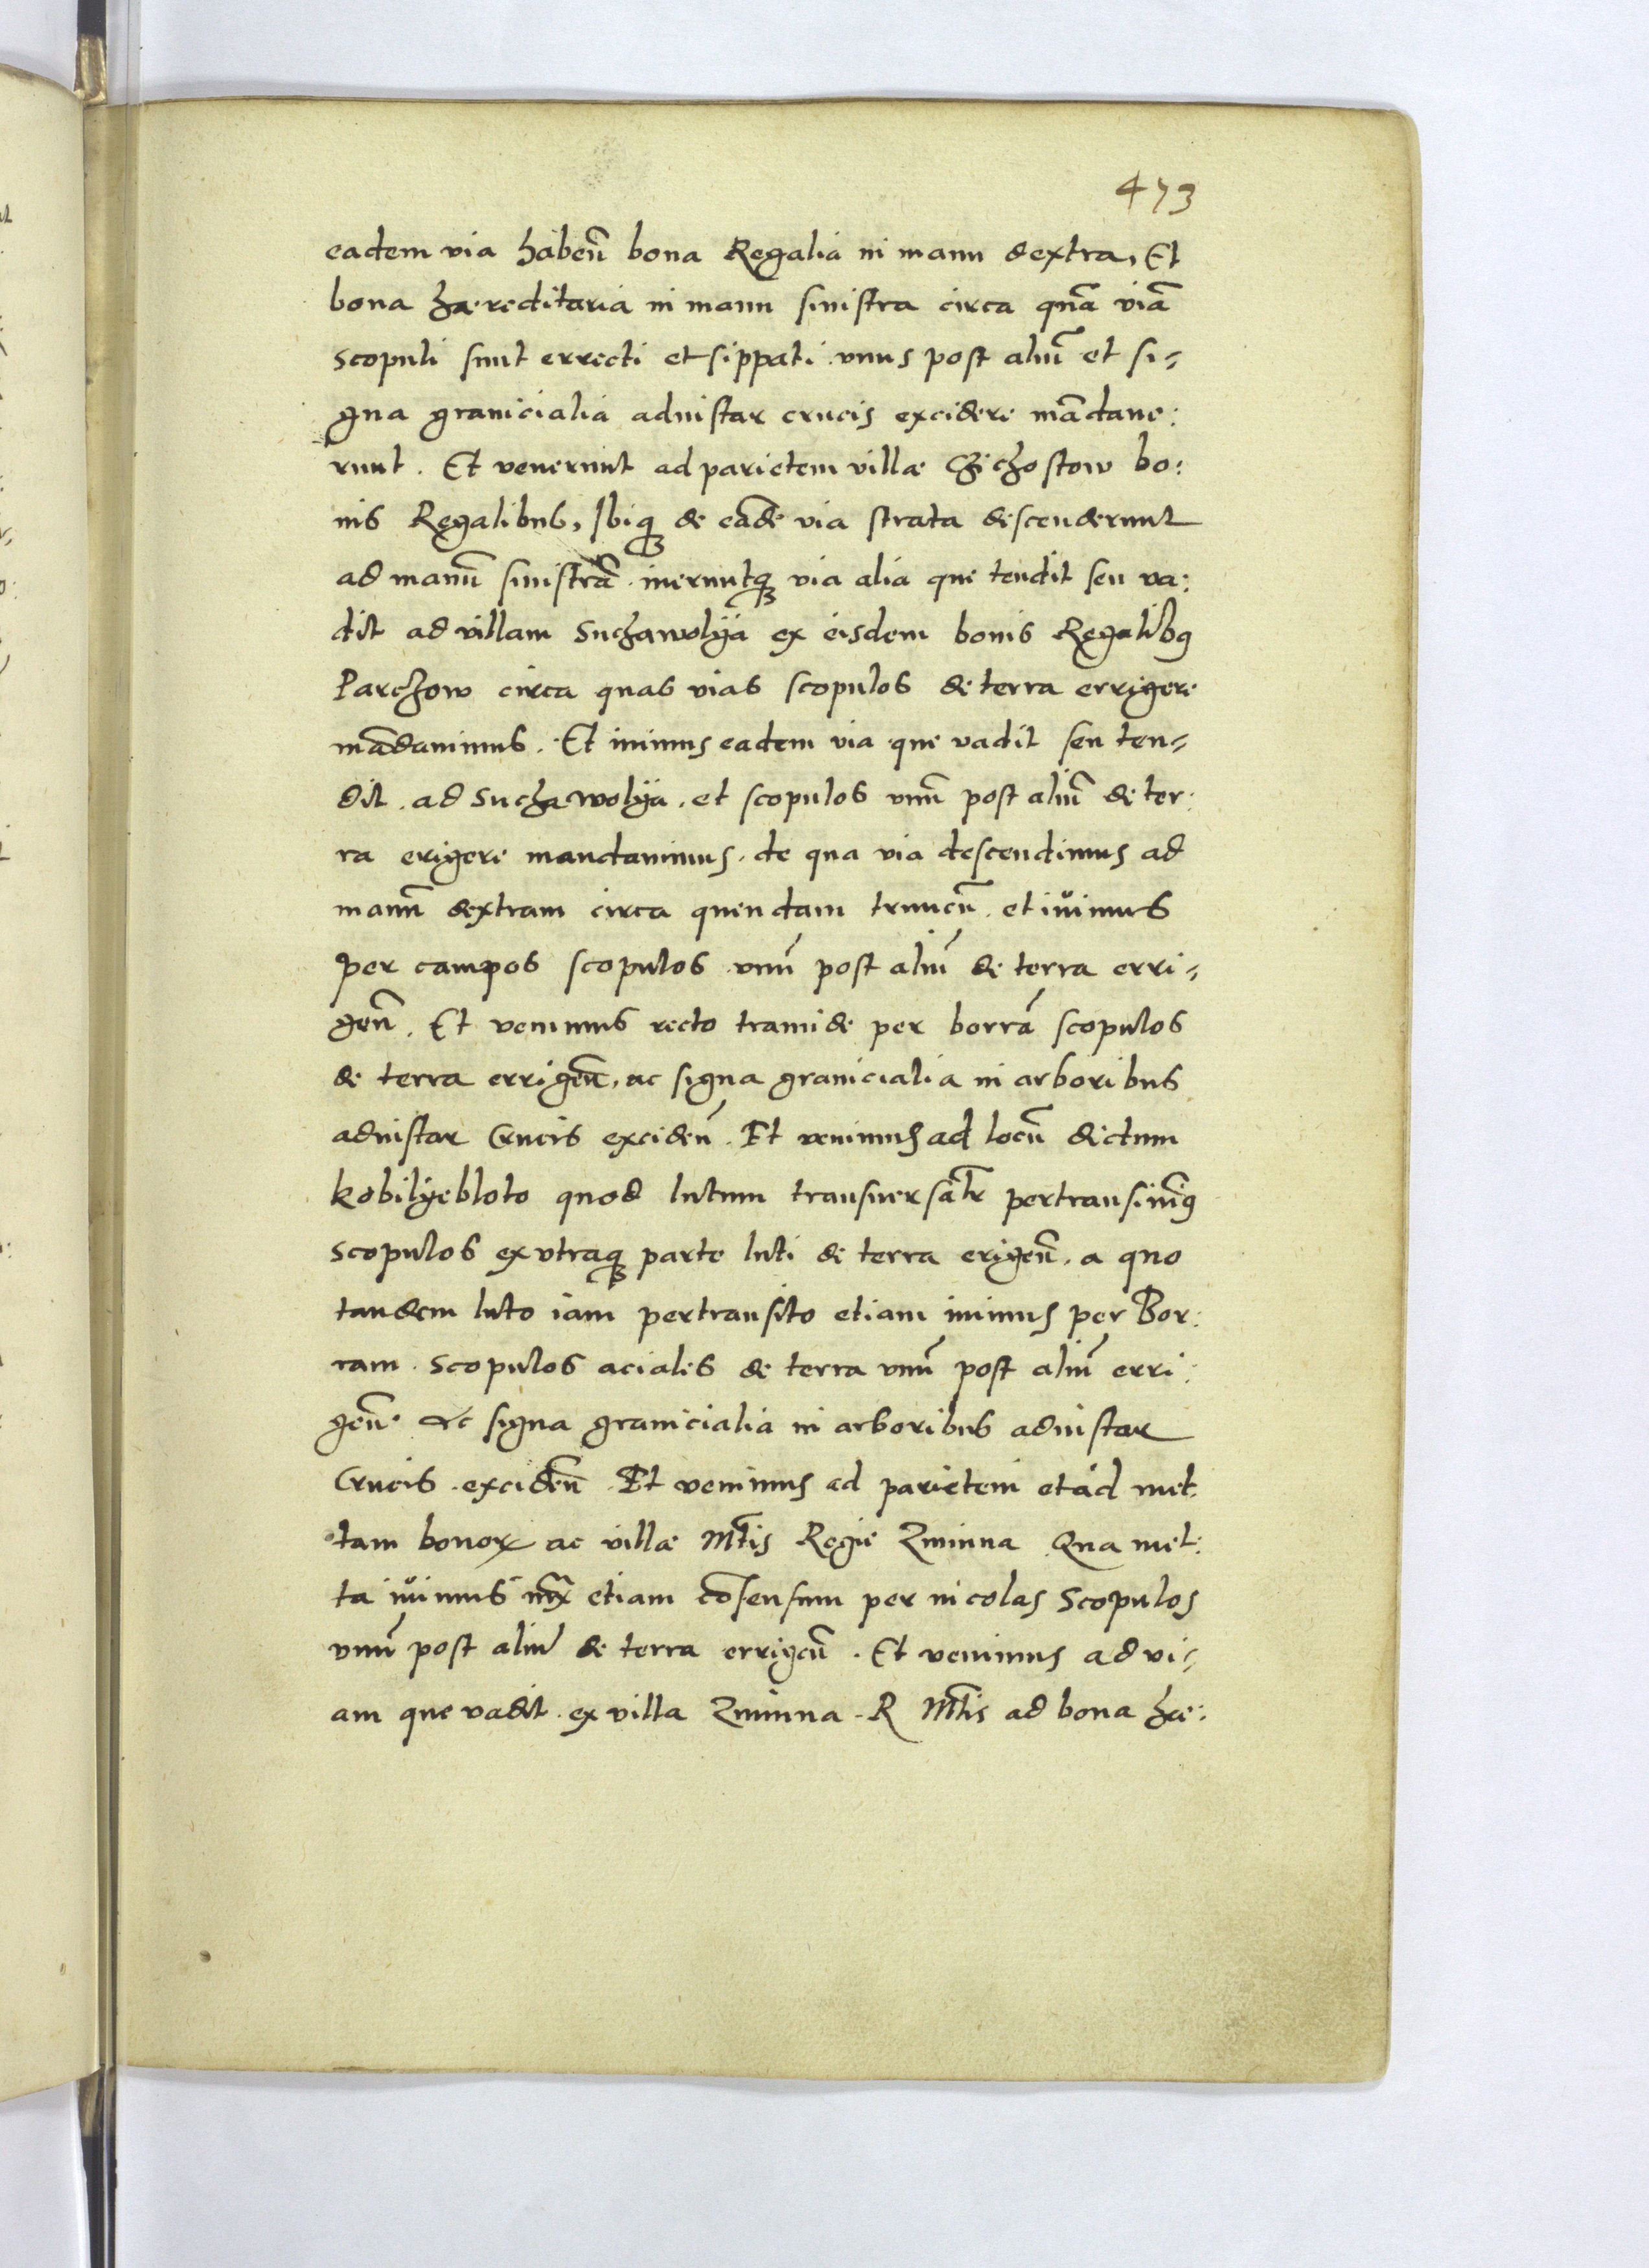 473
eadem via habeñ bona Regalia in manu dextra, Et
bona hæreditaria in manu sinistra circa quã viã
scopuli sunt errecti et sippati. unus post aliũ et si-
gna granicialia adinstar crucis excidere mãdaue:
runt. Et venerunt ad parietem villæ Chichostow bo:
nis Regalibus, Ibiq; de eadẽ via strata descenderunt
ad manũ sinistrã. iueruntq; via alia que tendit seu va:
dit ad villam Suchawolÿa ex eisdem bonis Regalibꝯ
Parchow circa quas vias scopulos de terra errigere
mãdauimus. Et iuimus eadem via que vadit seu ten-
dit. ad Suchawolÿa. et scopulos unũ post aliũ de ter:
ra erigere mandauimus. de qua via descendimus ad
manũ dextram circa quendam truncũ. et iuimus
per campos scopulos unũ post aliũ de terra erri-
geñ. Et venimus recto tramide per borrã scopulos
de terra errigeñ, ac signa granicialia in arboribus
adinstar Crucis excideñ. Et venimus ad locũ dictum
Kobilÿebloto quod lutum transuersatr̃ pertransiuimꝯ
scopulos ex utraq; parte luti de terra erigeñ. a quo
tandem luto iam pertransito etiam iuimus per Bor:
ram. scopulos aciales de terra unũ post aliũ erri:
geñ. Ac signa granicialia in arboribus adinstar
Crucis. excideñ. Et venimus ad parietem et ad met:
tam bonoꝝ ac villæ Mtis Regie Zminna Qua met:
ta iuimus etiam cõsensum per incolas Scopulos
unũ post aliũ de terra errigeñ. Et venimus ad vi-
am que vadit. ex villa Zminna. R Mtis ad bona hæ: